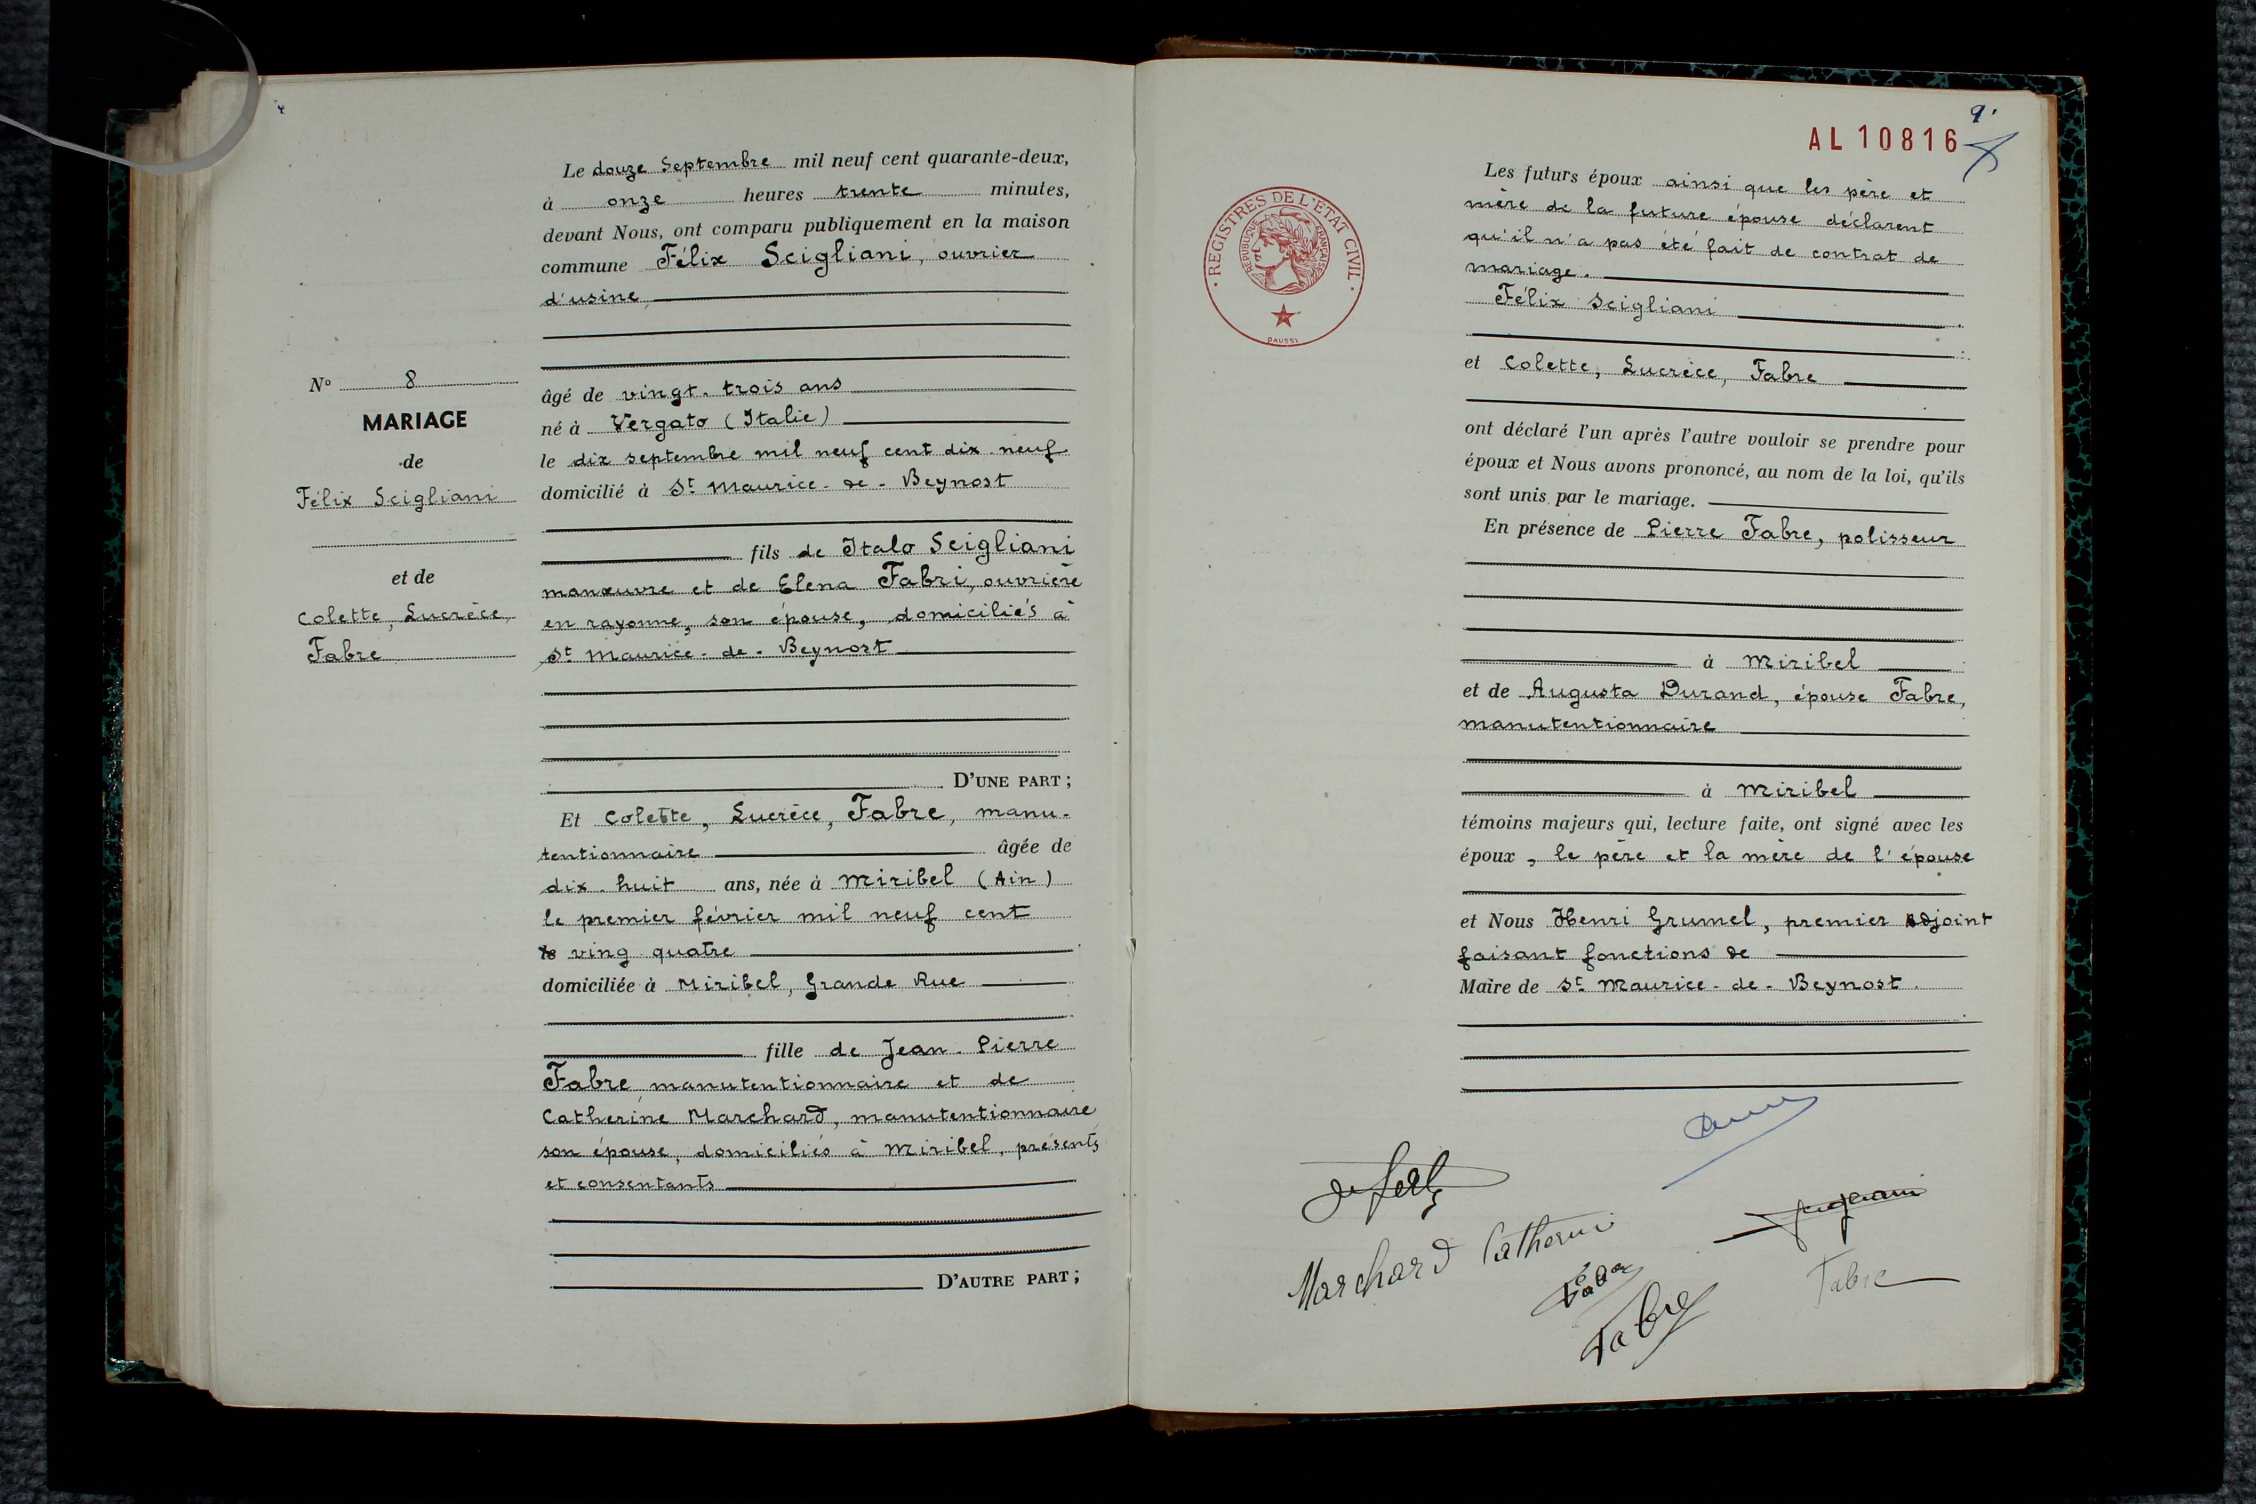 Le douze Septembre mil neuf cent quarante-deux,
à onze heures trente minutes,
devant Nous, ont comparu publiquement en la maison
commune Félix Scigliani, ouvrier
d'usine
No 8
MARIAGE
de
Félix Scigliani
et de
Colette, Lucrèce,
Fabre
âgé de vingt-trois ans
né à Vergato (Italie)
le dix septembre mil neuf cent dix-neuf
domicilié à St Maurice-de-Beynost
fils de Italo Scigliani
manœuvre et de Elena Fabri, ouvrière
en rayonne, son épouse, domiciliés à
St Maurice-de-Beynost
D'UNE PART ;
Et Colette, Lucrèce, Fabre, manu-
tentionnaire âgée de
dix-huit ans, née à Miribel (Ain)
le premier février mil neuf cent
ving quatre
domiciliée à Miribel, Grande Rue
fille de Jean-Pierre
Fabre, manutentionnaire et de
Catherine Marchard, manutentionnaire
son épouse, domiciliés à Miribel, présents
et consentants
D'AUTRE PART ;
9.
AL 10816
REGISTRES DE L'ÉTAT CIVIL
RÉPUBLIQUE FRANÇAISE
DAUSSI
Les futurs époux ainsi que les père et
mère de la future épouse déclarent
qu'il n'a pas été fait de contrat de
mariage.
Félix Scigliani
et Colette, Lucrèce, Fabre
ont déclaré l'un après l'autre vouloir se prendre pour
époux et Nous avons prononcé, au nom de la loi, qu'ils
sont unis par le mariage.
En présence de Pierre Fabre, polisseur
à Miribel
et de Augusta Durand, épouse Fabre,
manutentionnaire
à Miribel
témoins majeurs qui, lecture faite, ont signé avec les
époux, le père et la mère de l'épouse
et Nous Henri Grumel, premier adjoint
faisant fonctions de
Maire de St Maurice-de-Beynost.
Scigliani
Marchard Catherine
Fabre
Fabre
Fabre